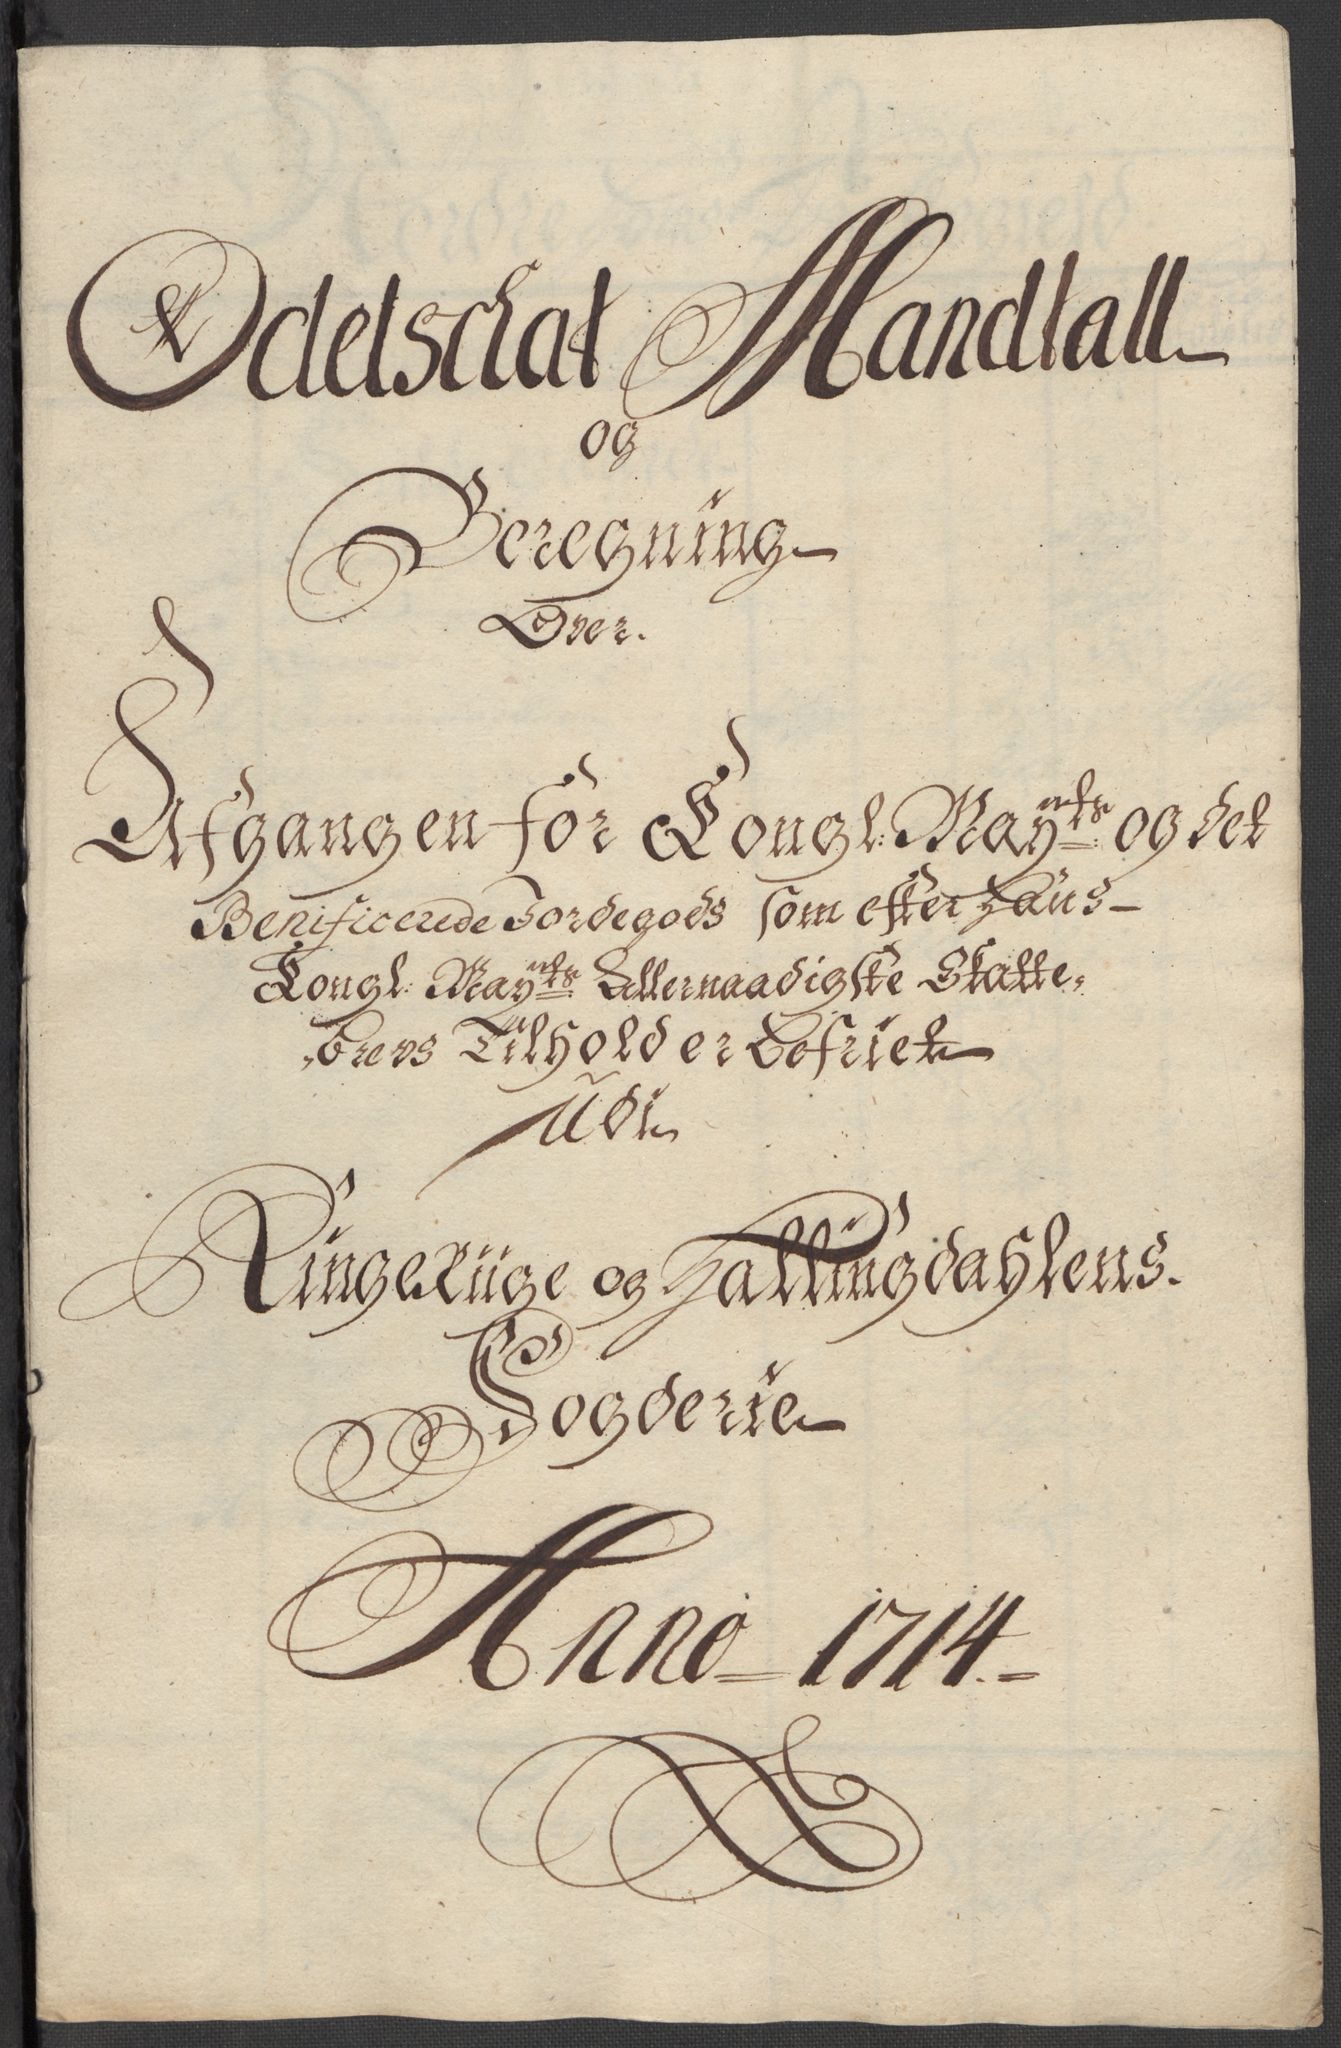 Odelschat Mandtall
og
Beregning
Over.
Afgangen for Kongl: Mayts: og det
Benificerede Jordegods som efter Hans
Kongl: Mayts: Allernaadigste Skatte-
brevs Tilhold er befriet
Udi
Ringeriige og Hallingdahlens.
Fogderie
Anno 1714.